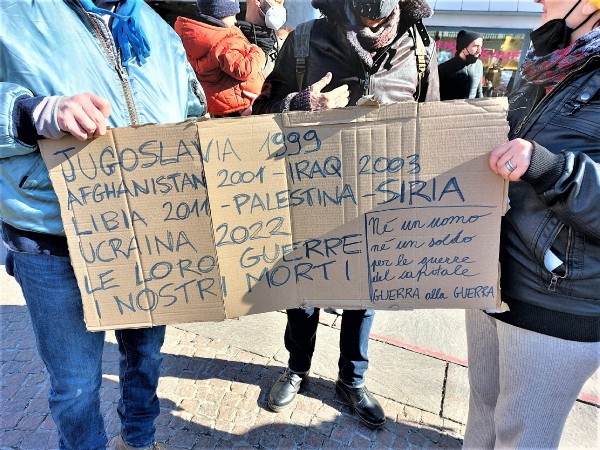 JUGOSLAVIA 1999
AFGHANISTAN 2001 - IRAQ 2003
LIBIA 2011 - PALESTINA - SIRIA
UCRAINA 2022
LE LORO GUERRE
I NOSTRI MORTI
Né un uomo
né un soldo
per le guerre
del capitale
GUERRA alla GUERRA